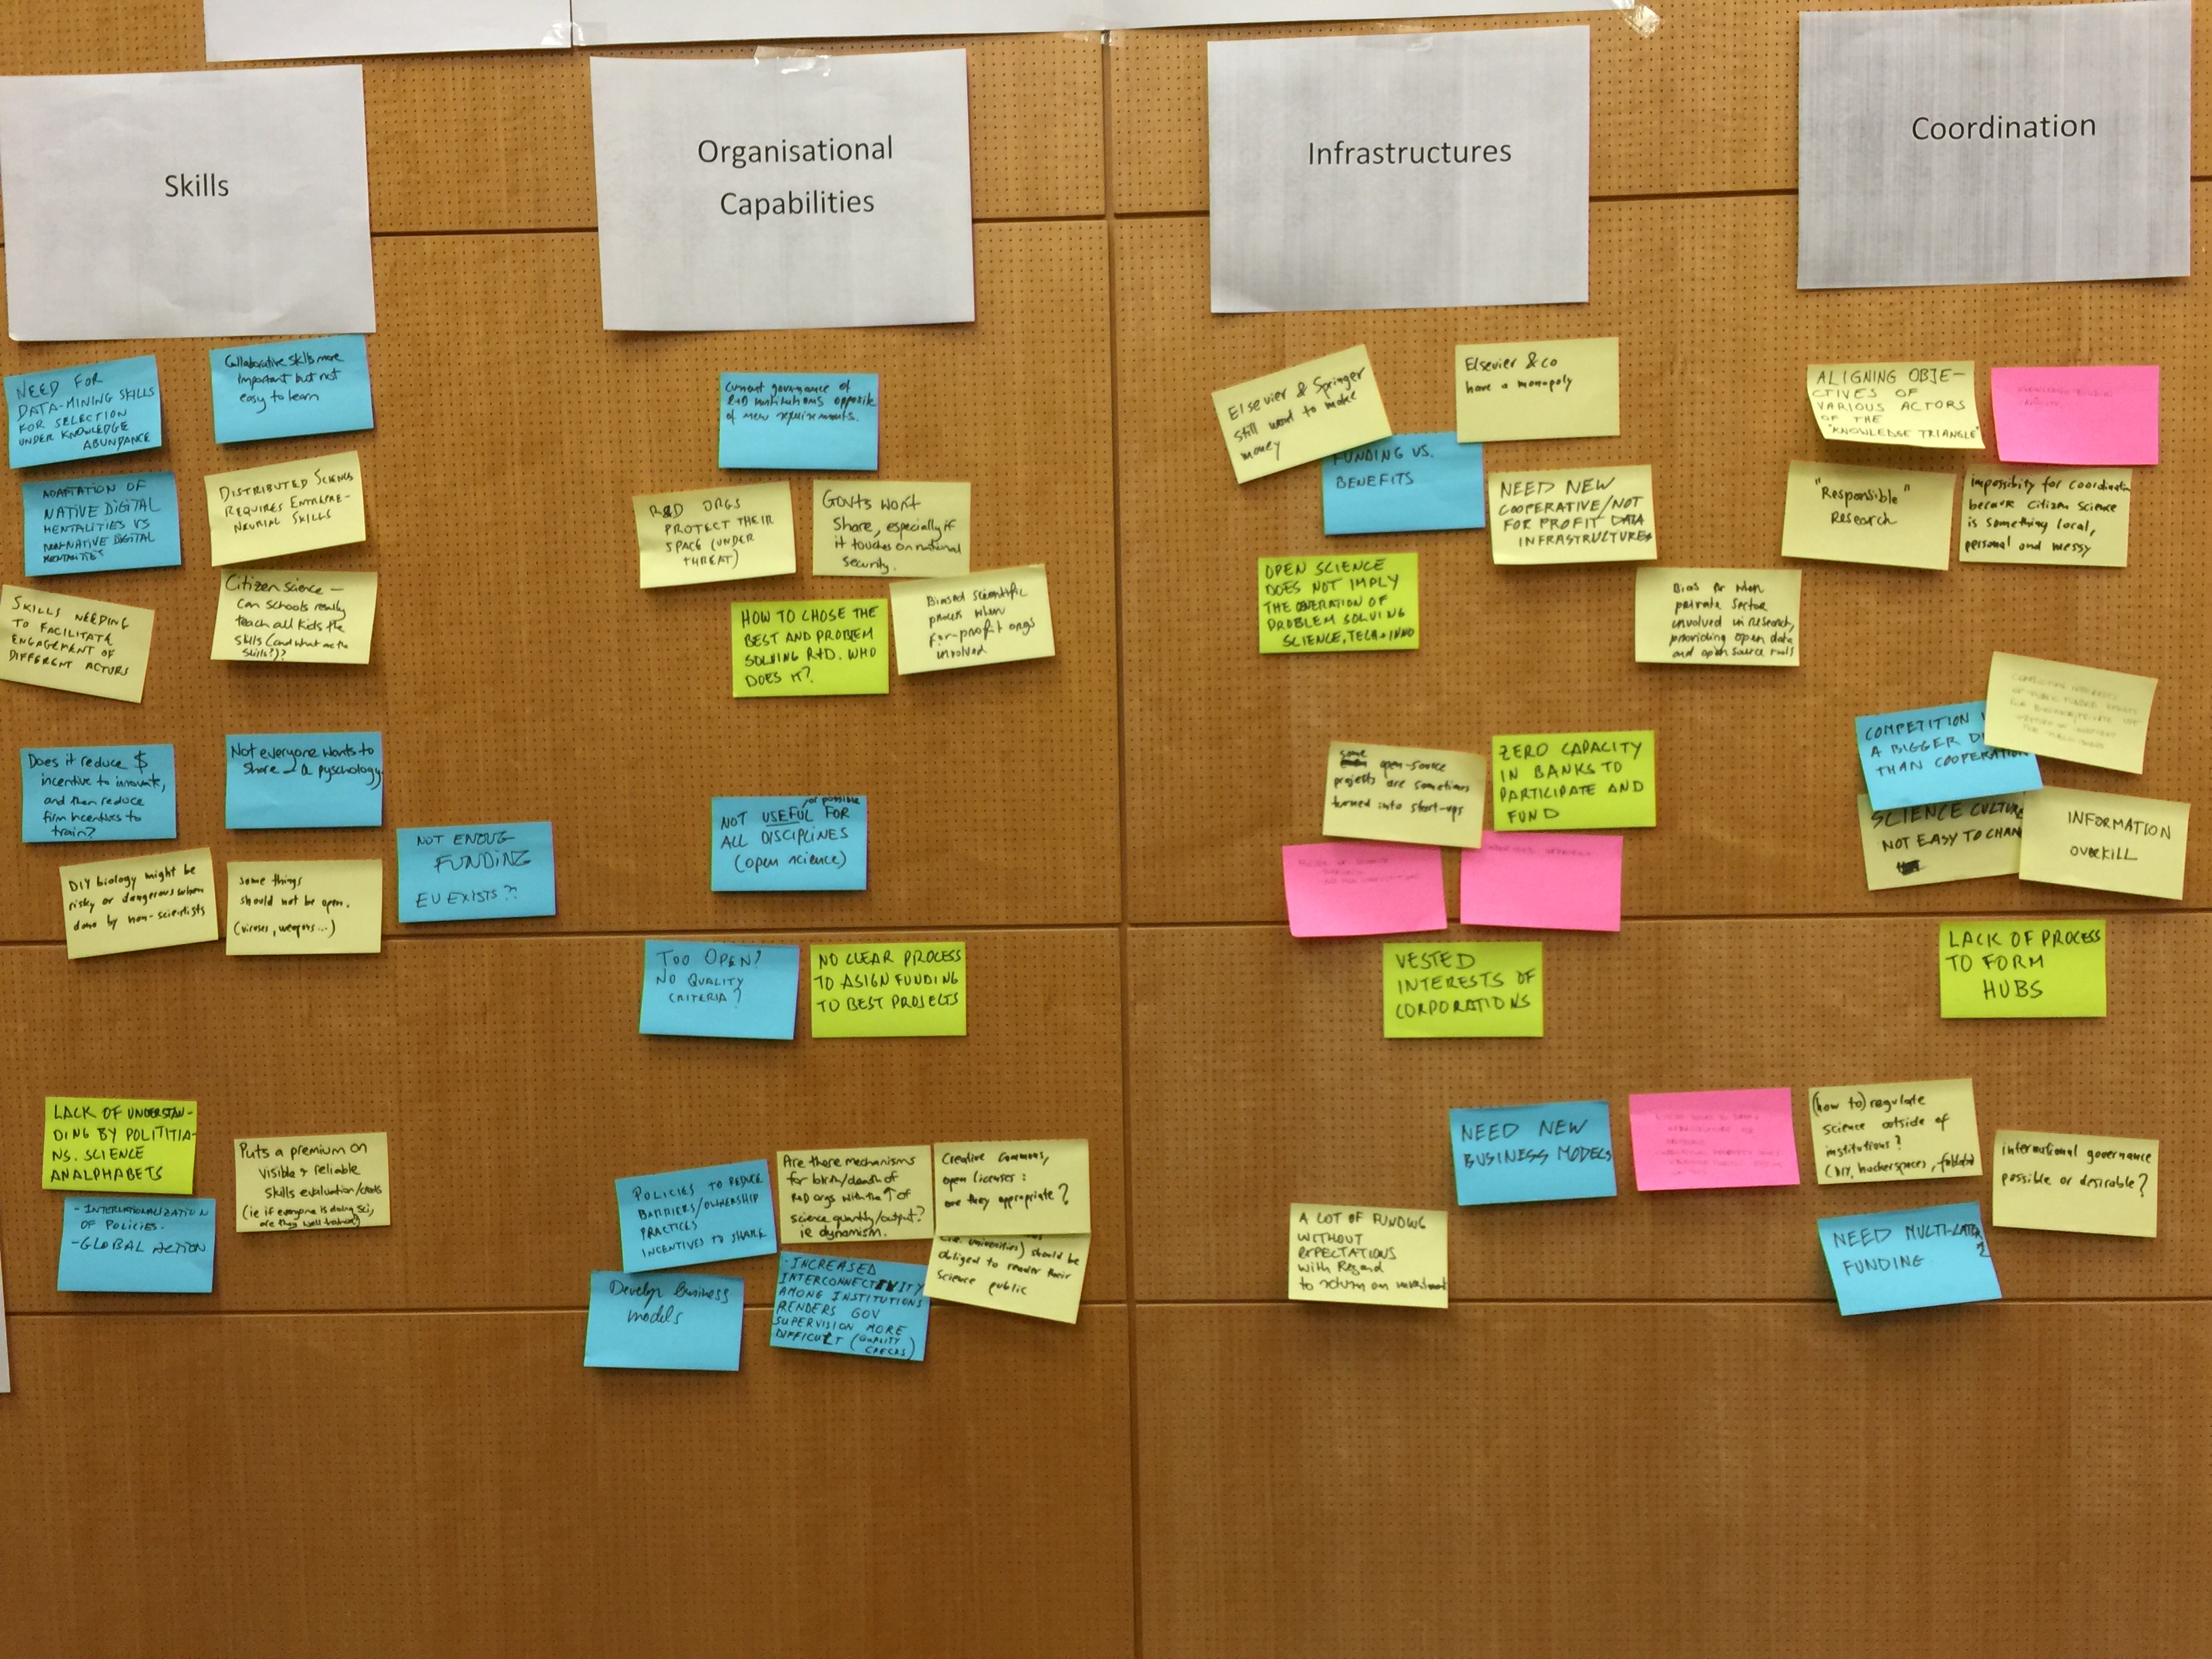 Skills
Organisational
Capabilities
Infrastructures
Coordination
NEED FOR
DATA-MINING SKILLS
FOR SELECTION
UNDER KNOWLEDGE
ABUNDANCE
Collaborative skills more
important but not
easy to learn
ADAPTATION OF
NATIVE DIGITAL
MENTALITIES VS
NON-NATIVE DIGITAL
MENTALITIES
DISTRIBUTED SCIENCE
REQUIRES ENTREPRE-
NEURIAL SKILLS
SKILLS NEEDING
TO FACILITATE
ENGAGEMENT OF
DIFFERENT ACTORS
Citizen science –
can schools really
teach all kids the
skills (and what are the
skills?)?
Does it reduce $
incentive to innovate,
and then reduce
firm incentives to
train?
Not everyone wants to
share – a pyschology
NOT ENOUG
FUNDING
EU EXISTS??
DIY biology might be
risky or dangerous when
done by non-scientists
some things
should not be open.
(viruses, weapons...)
LACK OF UNDERSTAN-
DING BY POLITITIA-
NS. SCIENCE
ANALPHABETS
Puts a premium on
visible & reliable
skills evaluation/
(ie if everyone is doing sci,
are they well trained)
- INTERNATIONALIZATION
OF POLICIES.
- GLOBAL ACTION
Current governance of
R&D institutions opposite
of new requirements.
R&D ORGS
PROTECT THEIR
SPACE (UNDER
THREAT)
Govts won't
share, especially if
it touches on national
security.
HOW TO CHOSE THE
BEST AND PROBLEM
SOLVING R+D. WHO
DOES IT?
Biased scientific
process when
for-profit orgs
involved
or possible
NOT USEFUL FOR
ALL DISCIPLINES
(open science)
TOO OPEN?
NO QUALITY
CRITERIA?
NO CLEAR PROCESS
TO ASIGN FUNDING
TO BEST PROJECTS
POLICIES TO REDUCE
BARRIERS/OWNERSHIP
PRACTICES
INCENTIVES TO SHARE
Are there mechanisms
for birth/death of
R&D orgs with the ↑ of
science quantity/output?
ie dynamism.
Creative Commons,
open licenses:
are they appropriate?
(i.e. universities) should be
obliged to render their
science public
Develop business
models
- INCREASED
INTERCONNECTIVITY
AMONG INSTITUTIONS
RENDERS GOV
SUPERVISION MORE
DIFFICULT (QUALITY
CHECKS)
Elsevier & Springer
still want to make
money
Elsevier & co
have a monopoly
FUNDING VS.
BENEFITS
NEED NEW
COOPERATIVE/NOT
FOR PROFIT DATA
INFRASTRUCTURES
OPEN SCIENCE
DOES NOT IMPLY
THE GENERATION OF
PROBLEM SOLVING
SCIENCE, TECH & INNO
Bias when
private sector
involved in research,
providing open data
and open source tools
some open-source
projects are sometimes
turned into start-ups
ZERO CAPACITY
IN BANKS TO
PARTICIPATE AND
FUND
VESTED
INTERESTS OF
CORPORATIONS
NEED NEW
BUSINESS MODELS
A LOT OF FUNDING
WITHOUT
EXPECTATIONS
with Regard
to return on investment
ALIGNING OBJE-
CTIVES OF
VARIOUS ACTORS
OF THE
"KNOWLEDGE TRIANGLE"
"Responsible"
Research
impossibility for coordination
because citizen science
is something local,
personal and messy
COMPETITION
A BIGGER
THAN COOPERATION
SCIENCE CULTURE
NOT EASY TO CHAN
INFORMATION
OVERKILL
LACK OF PROCESS
TO FORM
HUBS
(how to) regulate
science outside of
institutions?
(DIY, hackerspaces, fablabs)
international governance
possible or desirable?
NEED MULTI-LATERAL
FUNDING